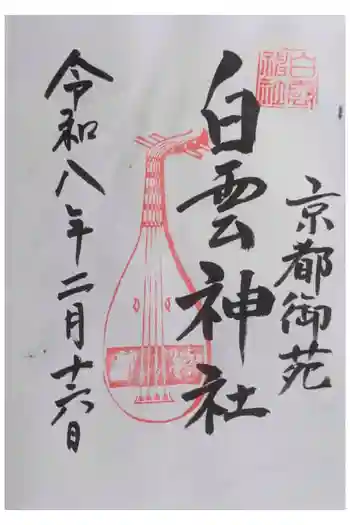 京都御苑
白雲神社
令和八年二月十六日
白雲神社